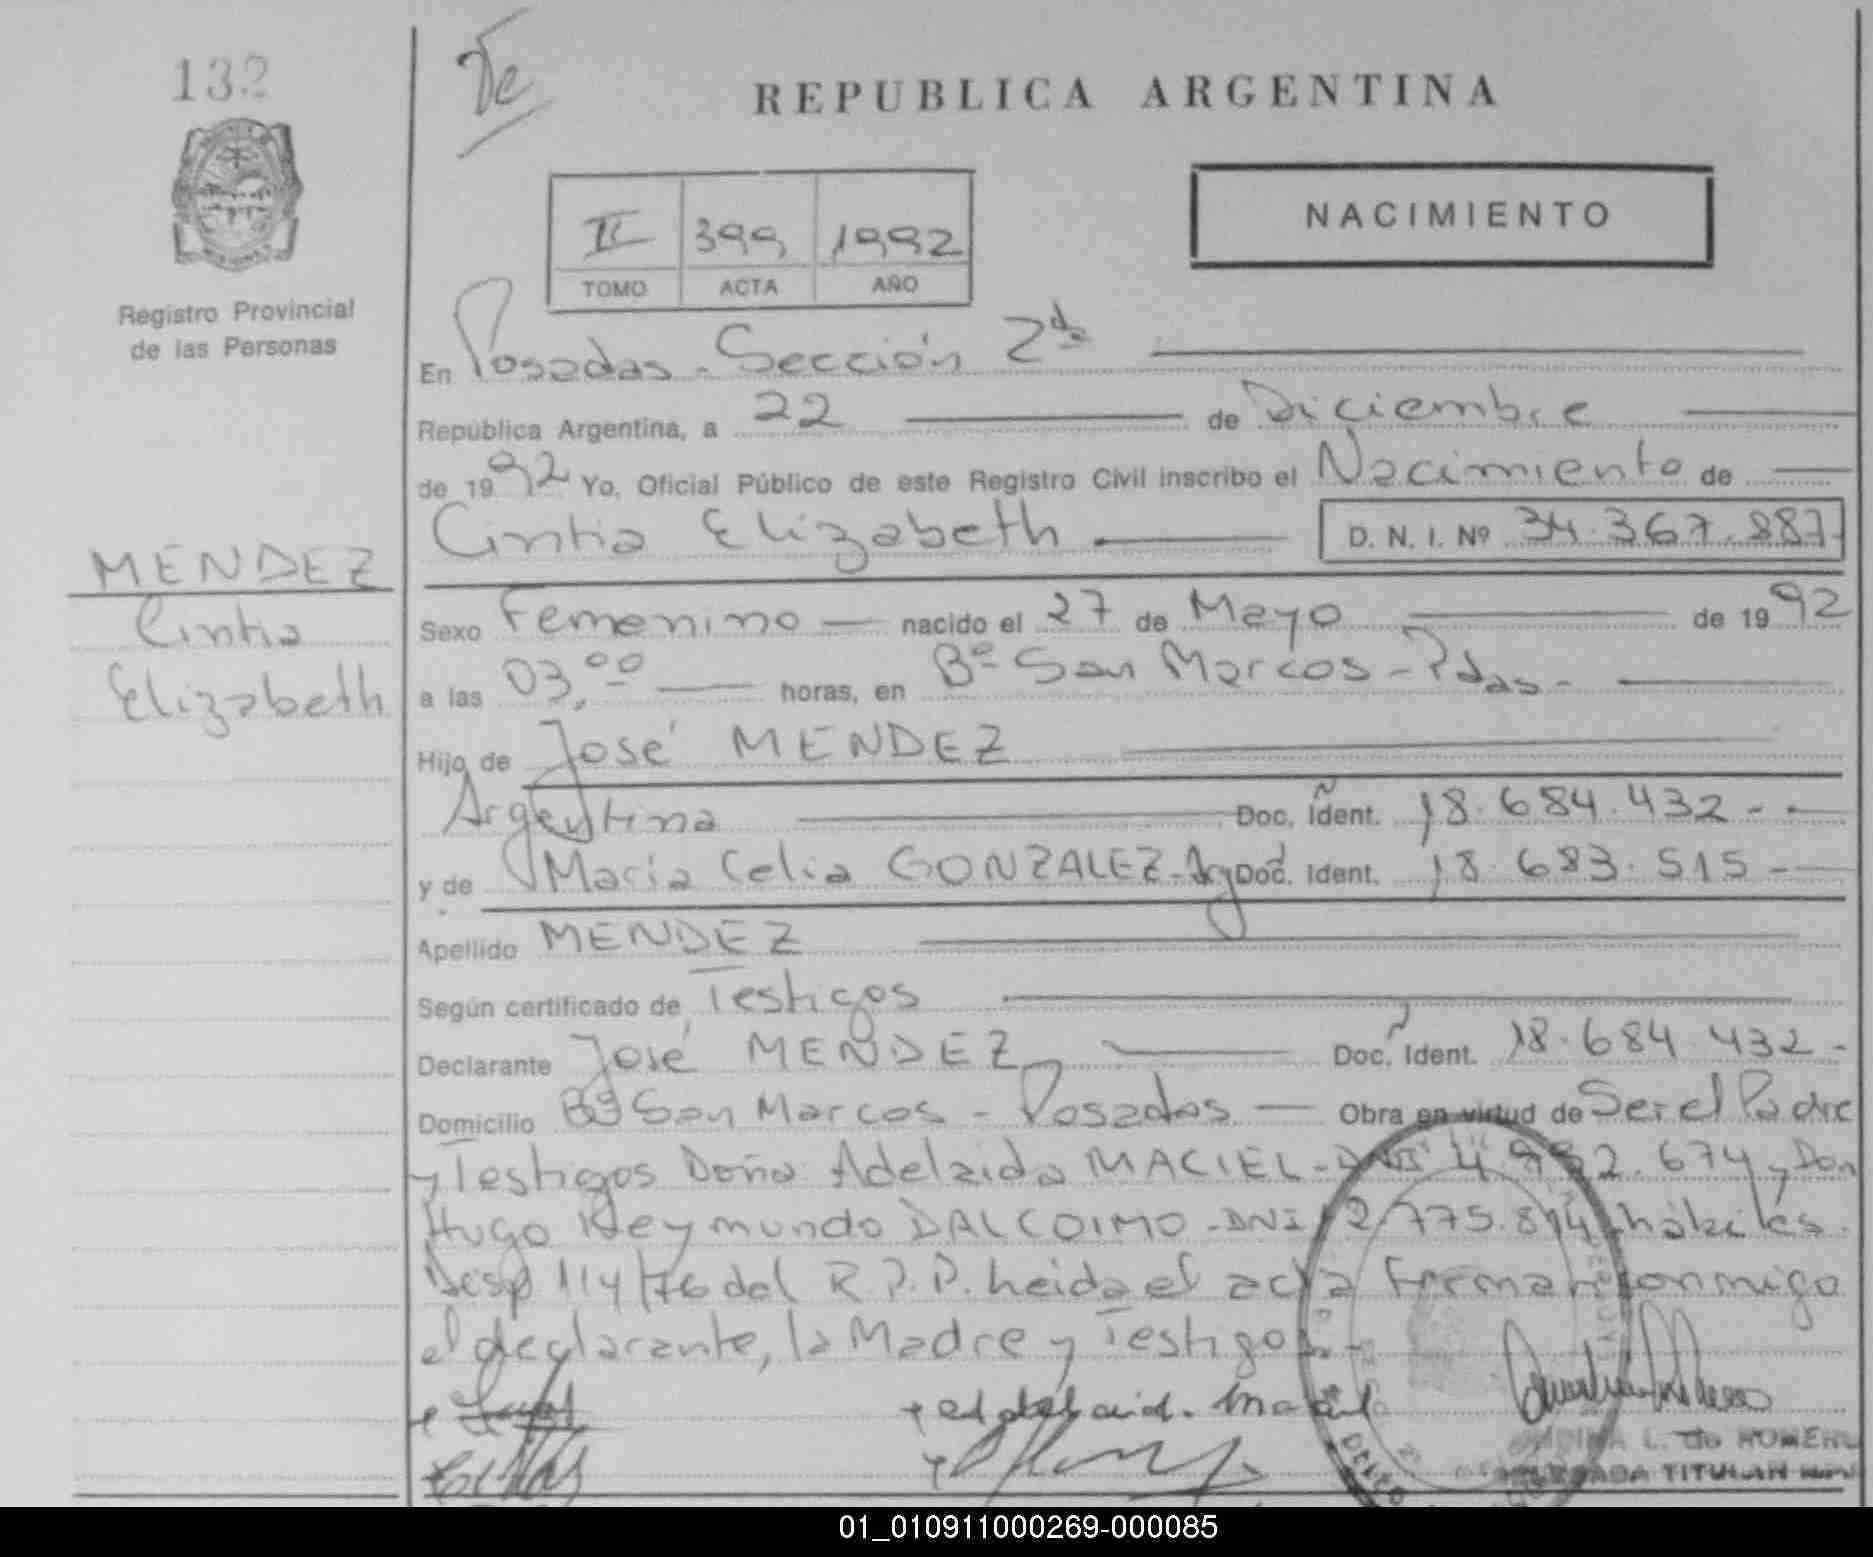 132
De
REPUBLICA ARGENTINA
II 399 1992
TOMO ACTA AÑO
NACIMIENTO
Registro Provincial
de las Personas
En Posadas - Sección 2da
República Argentina, a 22 de Diciembre
de 1992 Yo, Oficial Público de este Registro Civil inscribo el Nacimiento de
Cintia Elizabeth D. N. I. Nº 34.367.887
MENDEZ
Cintia
Elizabeth
Sexo Femenino nacido el 27 de Mayo de 1992
a las 03,00 horas, en Bº San Marcos - Pdas -
Hijo de José MENDEZ
Argentina Doc. Ident. 18.684.432 -
y de María Celia GONZALEZ - Arg Doc. Ident. 18.683.515 -
Apellido MENDEZ
Según certificado de Testigos
Declarante José MENDEZ Doc. Ident. 18.684.432 -
Domicilio Bº San Marcos - Posadas - Obra en virtud de Ser el Padre
y Testigos Doña Adelaida MACIEL - DNI 4.992.674 y Don
Hugo Reymundo DALCOLMO - DNI 12.775.814 hábiles.
Disp 114/76 del R.P.P. Leida el acta Firman conmigo
el declarante, la Madre y Testigos -
L. de ROMERO
TITULAR
01_010911000269-000085